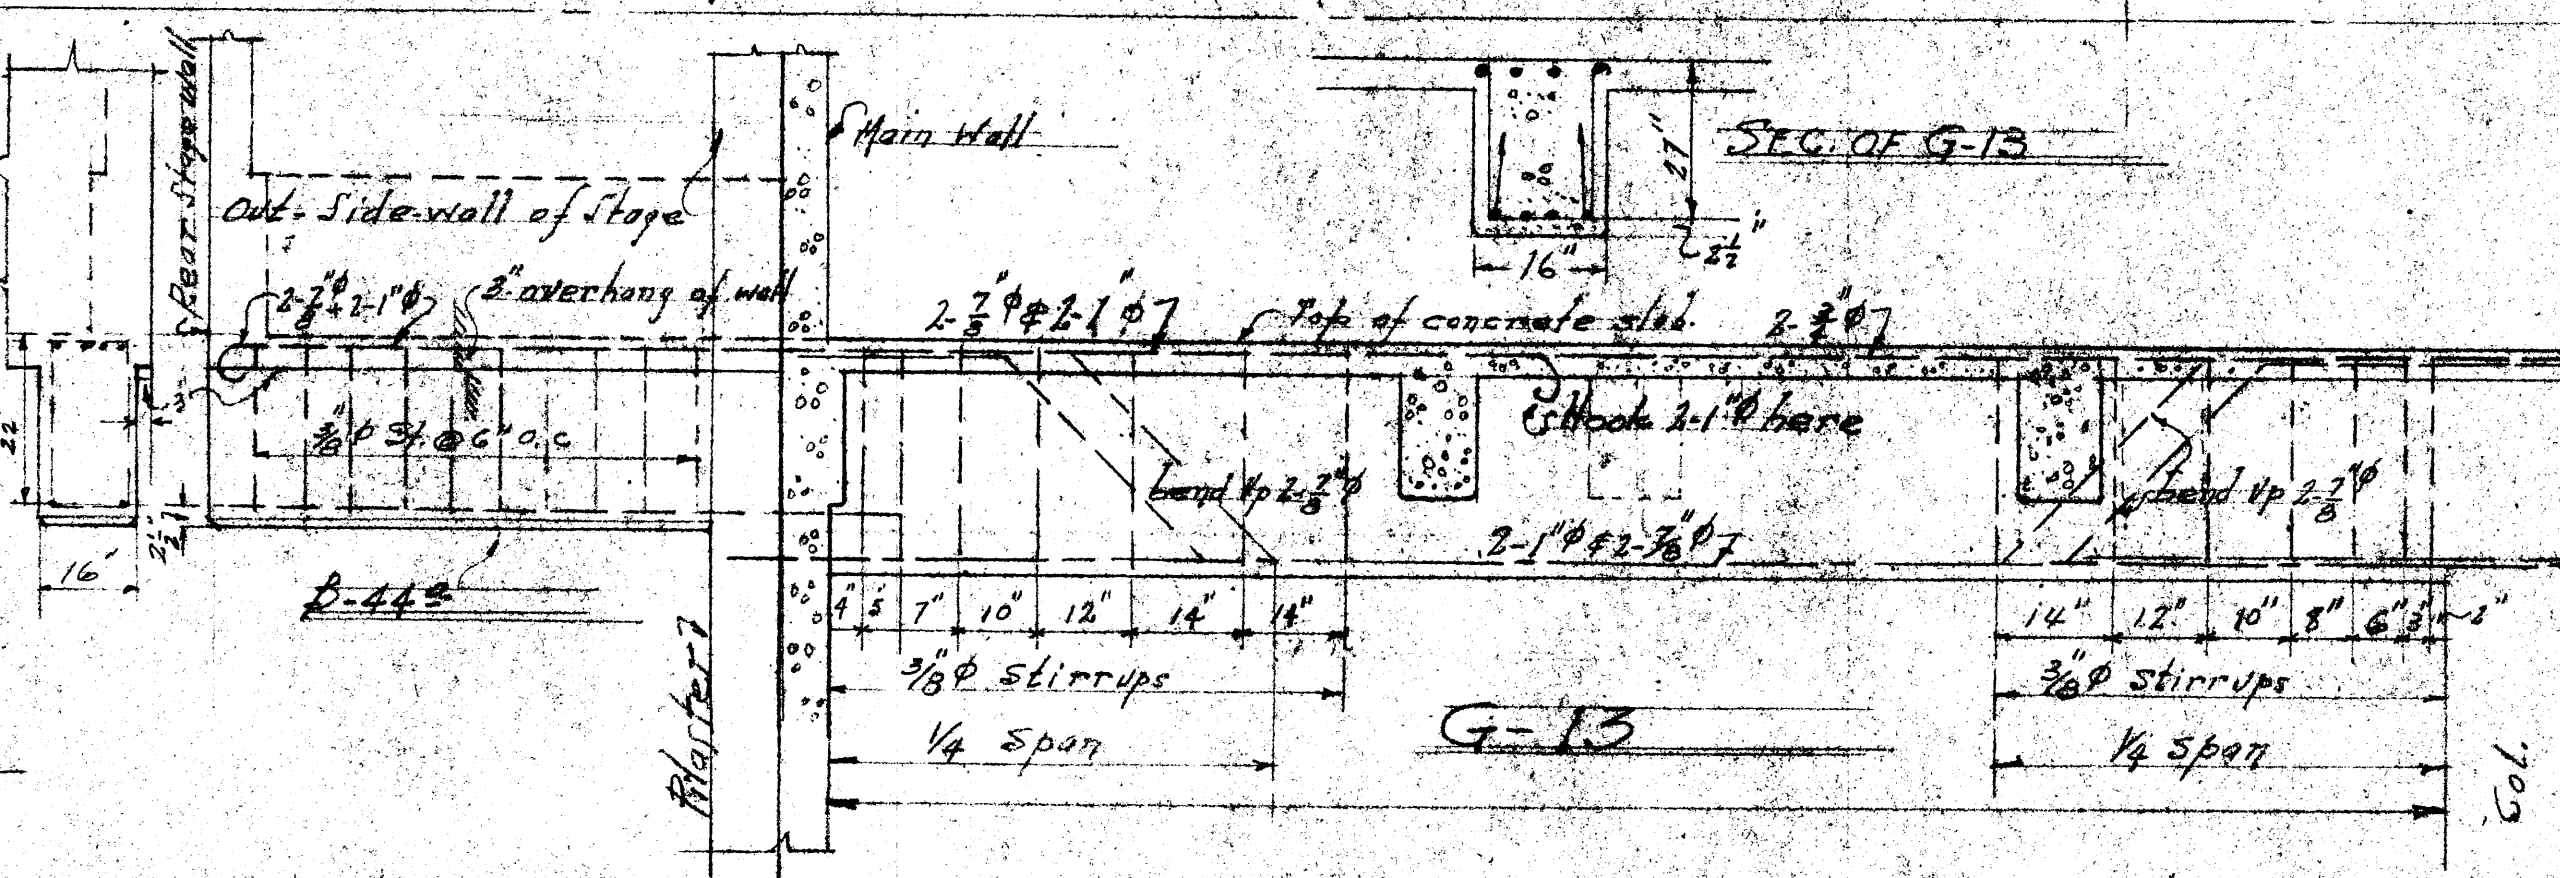 Rear Stage wall
Main Wall
SEC. OF G-13
27"
2 1/2"
16"
Out-Side-wall of Stage
2-7/8"φ + 2-1"φ
3" overhang of wall
2-7/8"φ & 2-1"φ
Top of concrete slab.
2-3/4"φ
3/8"φ St. @ 6" O.C
Hook 2-1"φ here
22
bend up 2-7/8"φ
bend up 2-7/8"φ
2 1/2"
2-1"φ & 2-7/8"φ
16"
B-44a
4" 5" 7" 10" 12" 14" 14"
14" 12" 10" 8" 6" 3" 2"
3/8"φ Stirrups
3/8"φ Stirrups
Pilaster
1/4 Span
G-13
1/4 Span
Col.